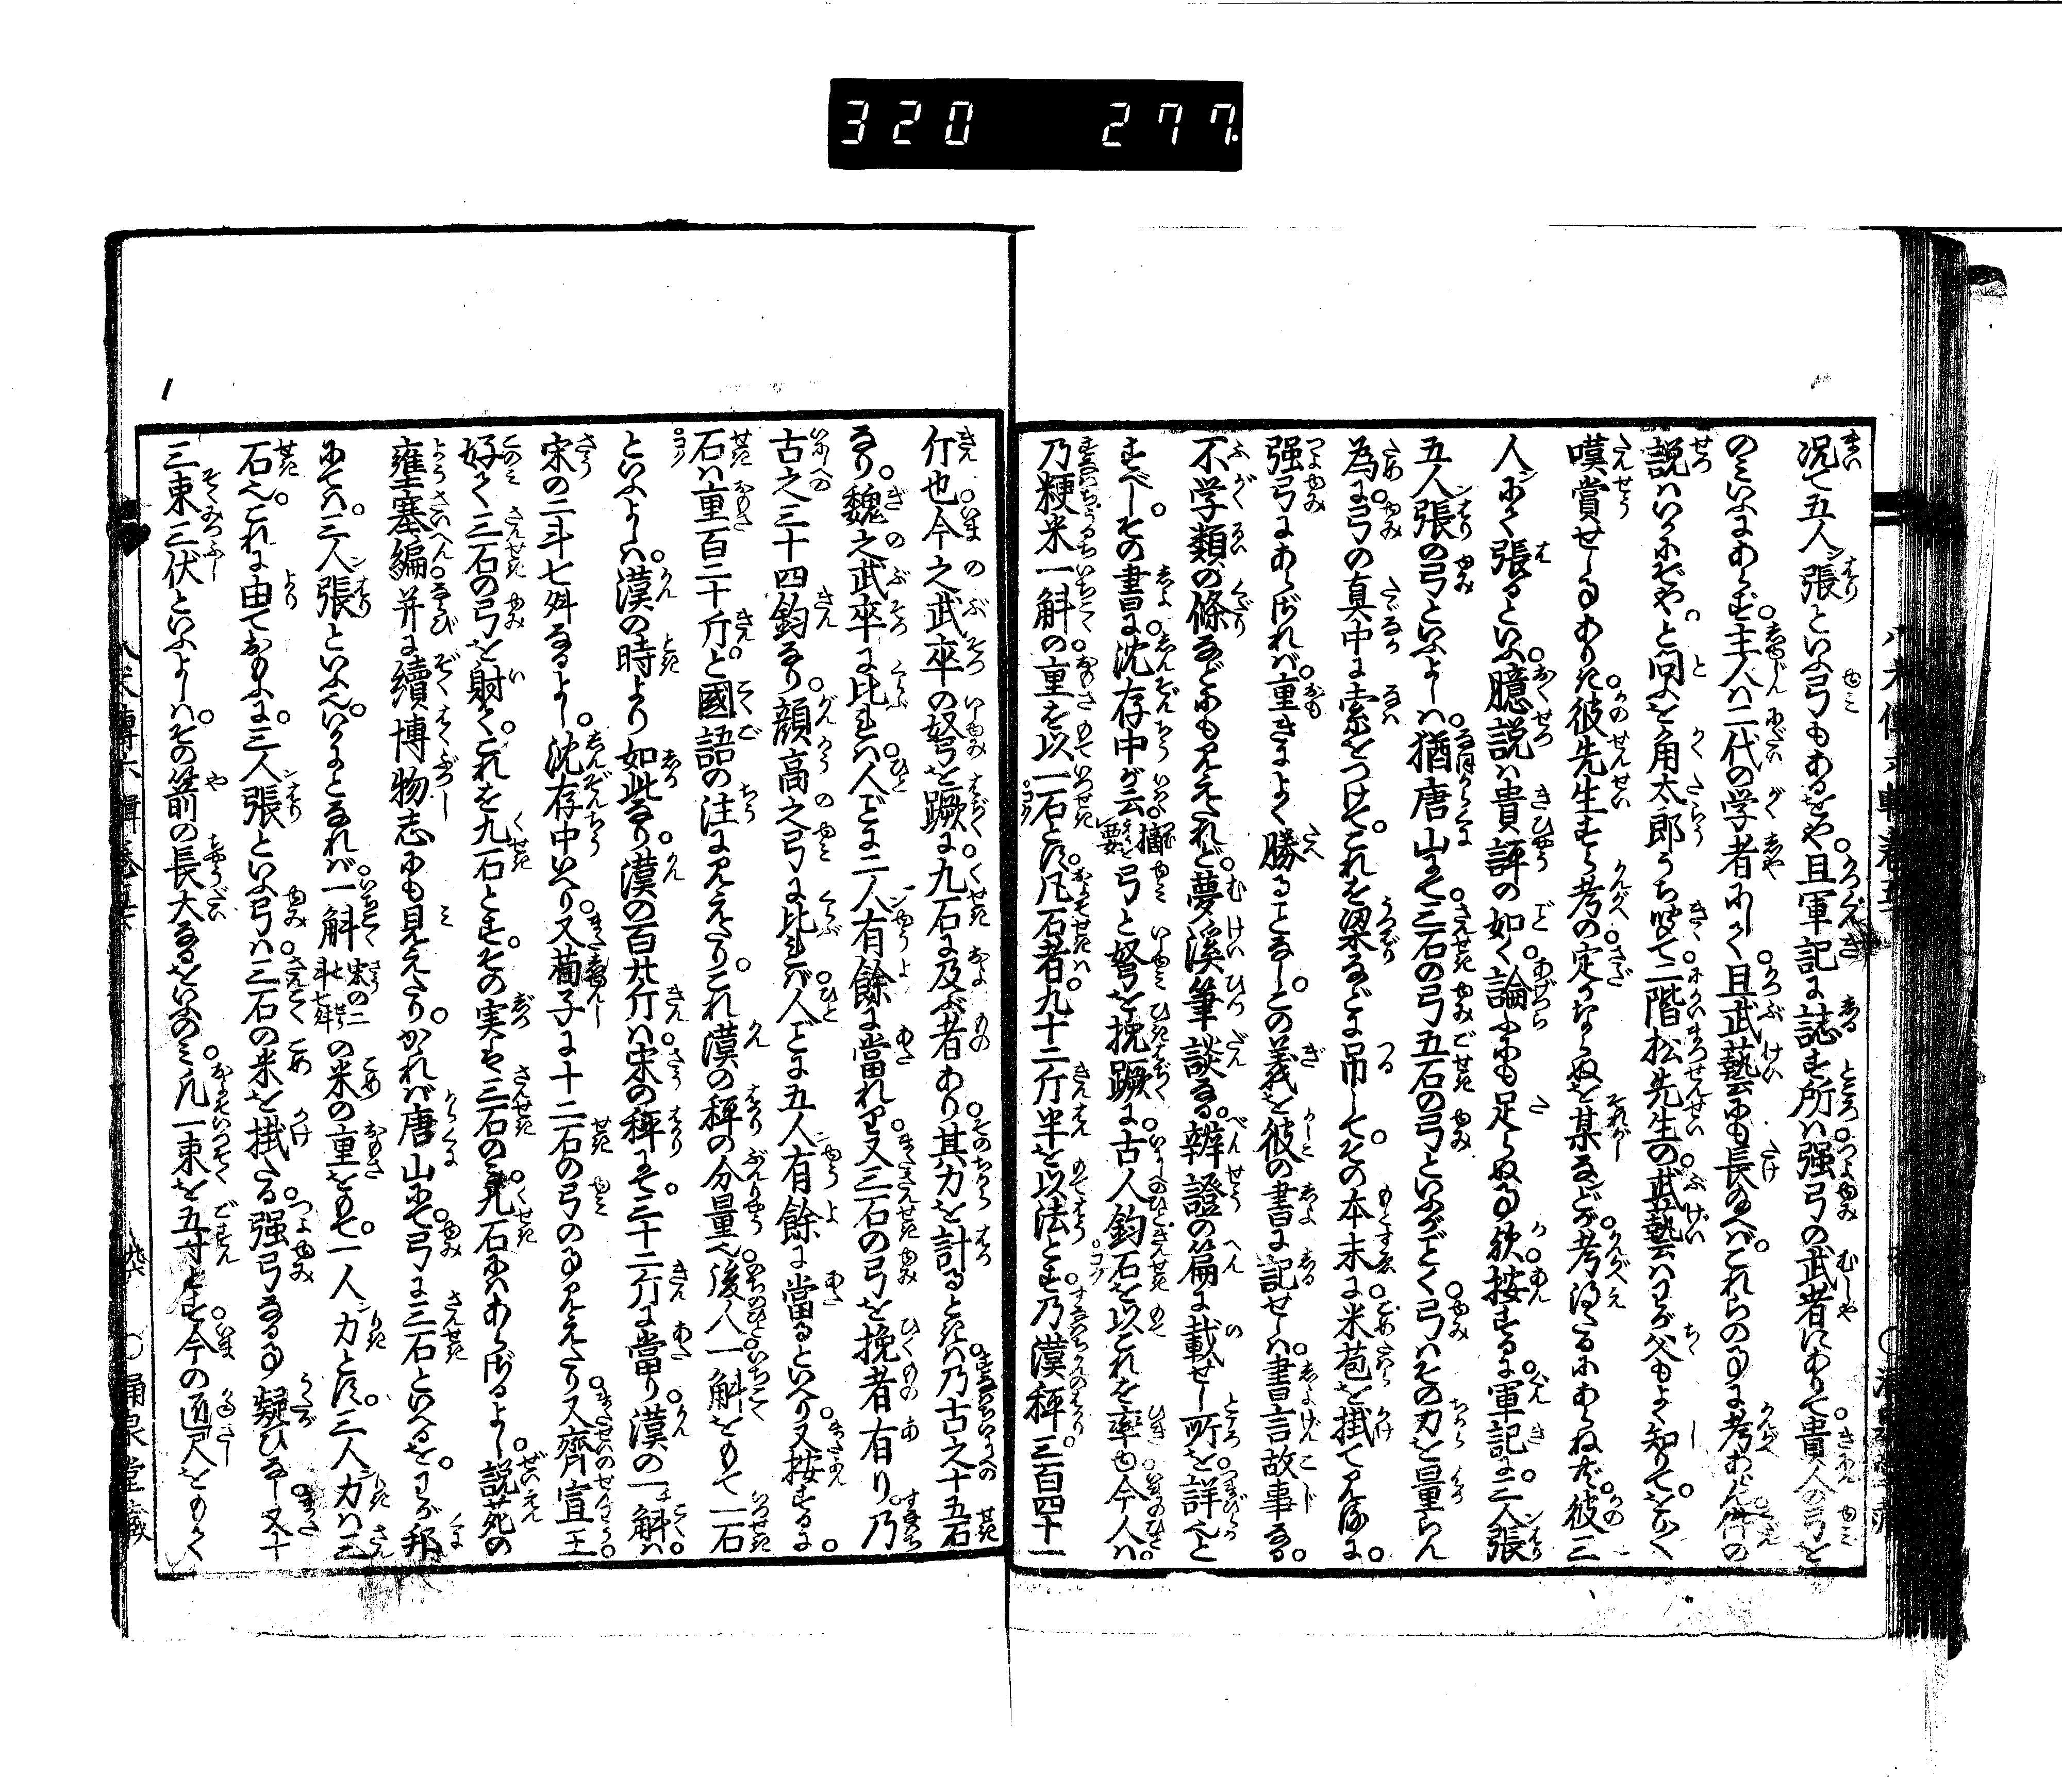 320 277
况て五人張といふ弓もあるをや。且軍記に誌す所は、強弓の武者にありて、貴人の弓を
のみいふにあらず。主人は二代の学者にしく、且武藝にも長給へば、これらの事に考あらん。件の
説はいかにぞや、と問ふを角太郎うち聴て、二階松先生の武藝は、わが父もよく知りて、をさをさ
嘆賞せし事ありき。彼先生すら考の定かならぬを、某などが考得たるにあらねど、彼三
人にて張るといふ臆説は、貴評の如く論ふにも足らぬ事歟。按ずるに軍記に、三人張
五人張の弓といふよしは、猶唐山にて、三石の弓五石の弓といふがごとく、弓はその力を量らん
為に、弓の真中に索をつけて、これを梁などに吊して、その本末に、米苞を掛て見るに、
强弓にあらざれば、重きによく勝ることなし。この義を彼の書に記せしは、書言故事なる、
不学類の條などにも見えたれど、夢溪筆談なる、辨證の篇に載せし所を詳也と
すべし。その書に、沈存中が云、擂弓と弩を挽蹶に、古人鈞石を以これを率も、今人は、
乃粳米一斛の重を以一石とす。凡石者、九十二斤半を以法とす。乃漢秤、三百四十一
斤也。今之武卒の弩を蹶に、九石に及ぶ者あり。其力を計るときは、乃古之十五石
なり。魏之武卒に比れは、人どに二人有餘に當れり。又三石の弓を挽者有り、乃
古之三十四鈞なり。顔高之弓に比れば、人どに五人有餘に當るといへり。又按ずるに、
石は重百二十斤と、國語の注に見えたり。これ漢の秤の分量也。後人一斛をもて一石
といふよしは、漢の時より如此なり。漢の百廿斤は、宋の秤にて、三十二斤に當り、漢の一斛は、
宋の二斗七舛なるよし、沈存中いへり。又荀子に十二石の弓の事見えたり。又齊宣王、
好て三石の弓を射て、これを九石とす。その実は三石のみ、九石にはあらざるよし、説苑の
雍塞編、并に續博物志にも見えたり。かれば唐山にて、弓に三石といへるを、わが邦
にては、三人張といふ也。いかにとなれば、一斛宋の二斗七舛の米の重をもて、一人力とす。三人力は三
石也。これに由ておもふに、三人張といふ弓は、三石の米を掛たる、強弓なる事疑ひなし。又十
三束三伏といふよしは、その箭の長大なるをいふのみ。凡一束を五寸とす。今の通尺をもて